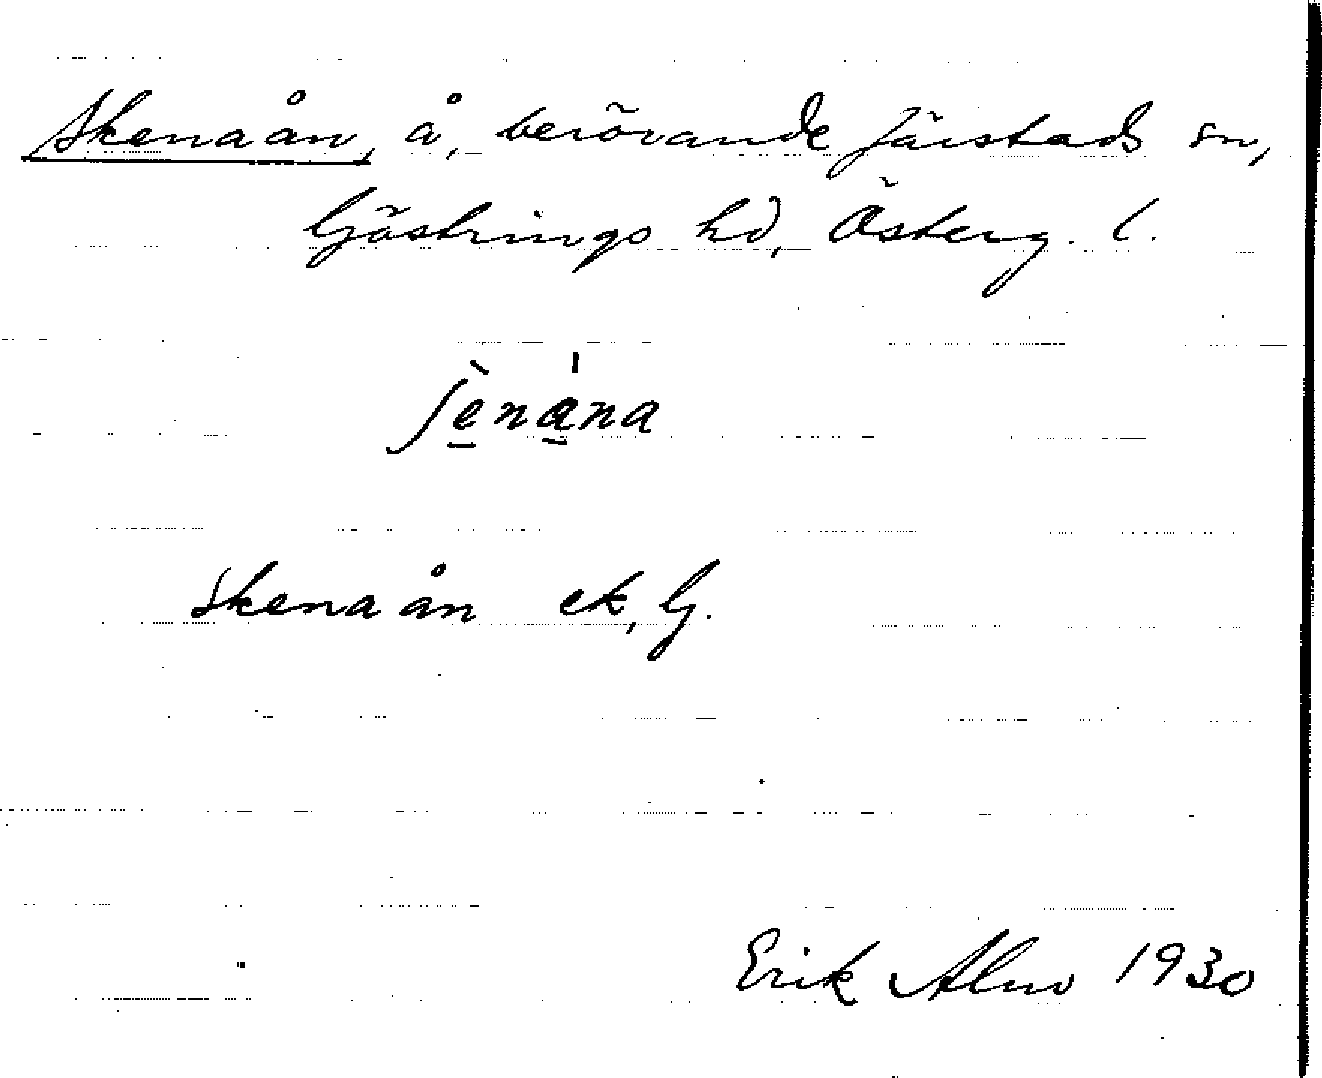 Skenaån, å, berörande Järstads sn,
Göstrings hd, Österg. l.
ʃènána
Skenaån ek, G.
Erik Alm 1930